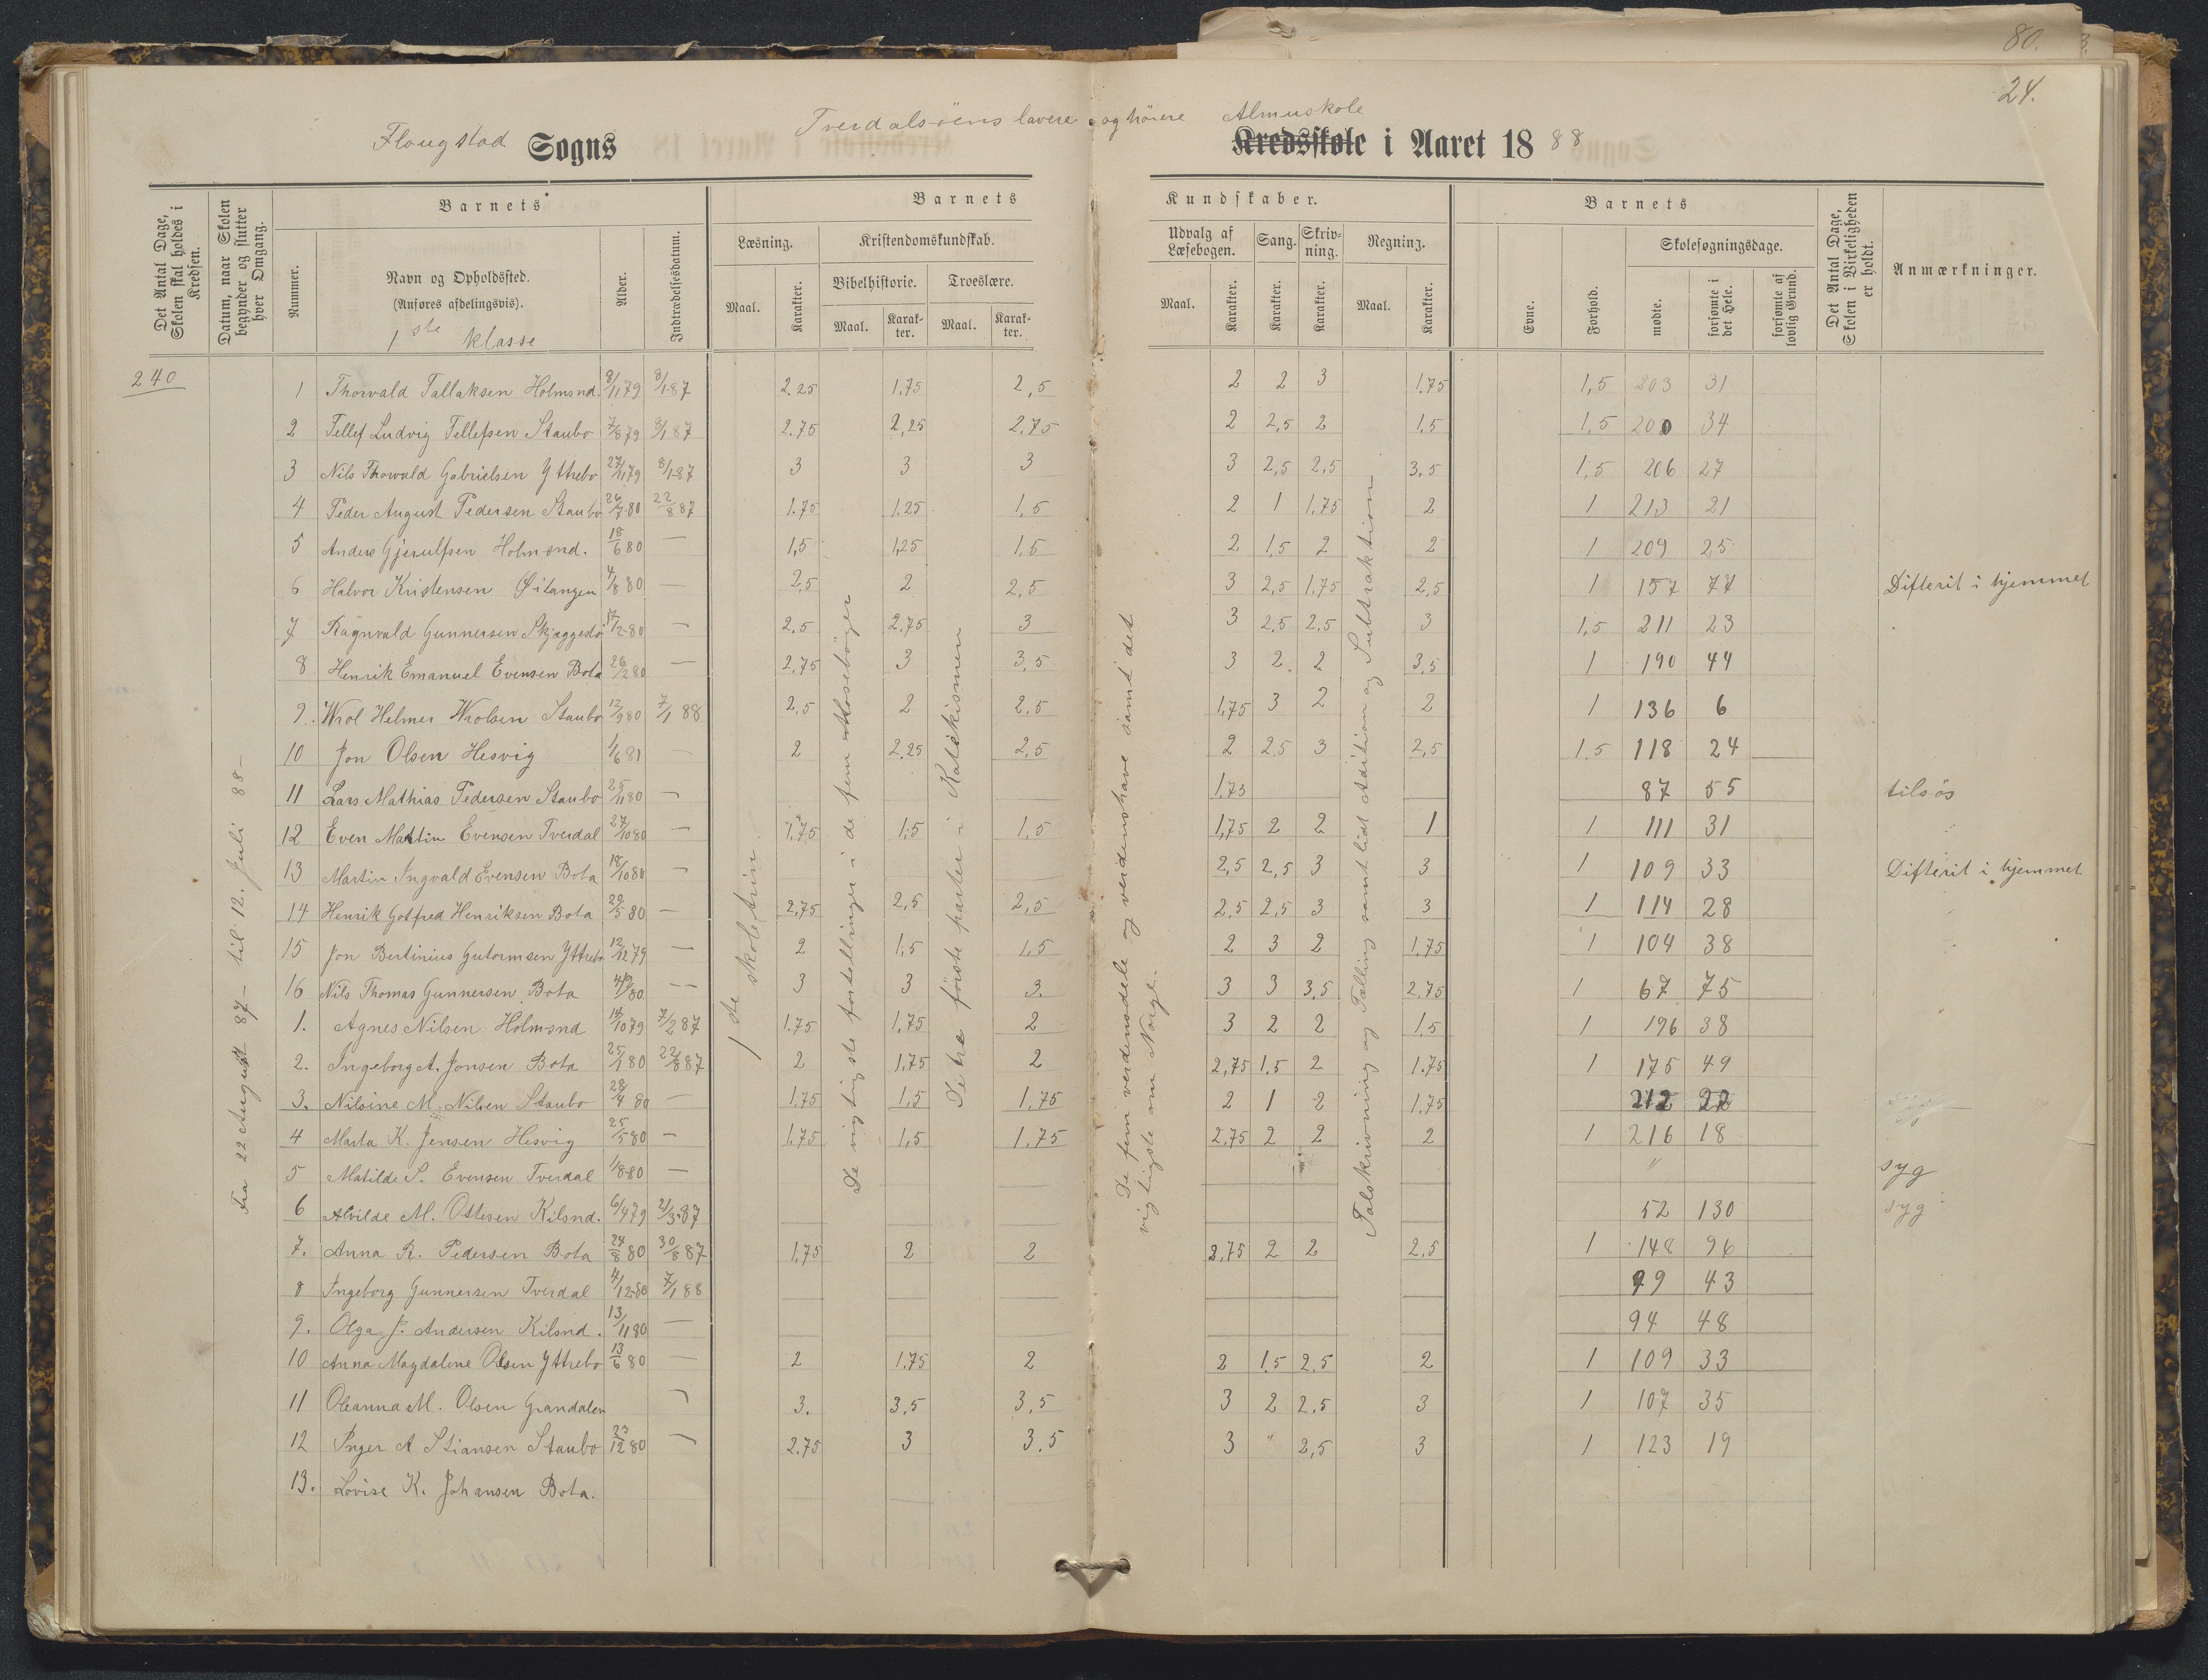 80.
24.
Flougstad Sogns Tverdalsöens lavere og höiere Almuskole
Kredsskole i Aaret 1888
Det Antal Dage, Skolen skal holdes i Kredsen.
Datum, naar Skolen begynder og slutter hver Omgang.
Barnets
Nummer.
Navn og Opholdssted.
(Anføres afdelingsvis).
1ste klasse
Alder.
Indtrædelsesdatum.
Barnets
Læsning.
Maal.
Karakter.
Kristendomskundskab.
Bibelhistorie.
Maal.
Karakter.
Troeslære.
Maal.
Karakter.
Kundskaber.
Udvalg af Læsebogen.
Maal.
Karakter.
Sang.
Karakter.
Skrivning.
Karakter.
Regning.
Maal.
Karakter.
Barnets
Evne.
Forhold.
Skolesøgningsdage.
mødte.
forsømte i det Hele.
forsømte af lovlig Grund.
Det Antal Dage, Skolen i Virkeligheden er holdt.
Anmærkninger.
240
Fra 22 August 87 - til 12. Juli 88 -
1ste skoletrin
De vigtigste fortellinger i de fem Mosebøger
De tre første parter i Katekismen
De fem verdensdele og verdenshave samt det vigtigste om Norge.
Talskrivning og Tælling samt lidt Addition og Subtraktion
1 Thorvald Tallaksen Holmsnd. 8/11 79 8/1 87 2.25 1.75 2,5 2 2 3 1.75 1,5 203 31
2 Tellef Ludvig Tellefsen Staubo 7/8 79 8/1 87 2.75 2,25 2.75 2 2,5 2 1,5 1,5 200 34
3 Nils Thorvald Gabrielsen Yttrebo 27/11 79 8/1 87 3 3 3 3 2,5 2,5 3,5 1,5 206 27
4 Peder August Pedersen Staubo 26/7 80 22/8 87 1.75 1.25 1,5 2 1 1,75 2 1 213 21
5 Anders Gjerulfsen Holmsnd. 18/6 80 — 1,5 1,25 1,5 2 1,5 2 2 1 209 25
6 Halvor Kristensen Øitangen 4/8 80 — 2,5 2 2,5 3 2,5 1.75 2,5 1 157 77 Difterit i hjemmet
7 Ragnvald Gunnersen Skjæggedö 17/2 80 — 2,5 2.75 3 3 2.5 2.5 3 1,5 211 23
8 Henrik Emanuel Evensen Bota 26/2 80 — 2,75 3 3,5 3 2. 2 3,5 1 190 44
9. Wrol Helmer Wrolsen Staubo 12/9 80 7/1 88 2,5 2 2,5 1,75 3 2 2 1 136 6
10 Jon Olsen Hesvig 1/6 81 — 2 2.25 2,5 2 2,5 3 2,5 1.5 118 24
11 Lars Mathias Pedersen Staubo 25/11 80 — 1.75 87 55 tilsös
12 Even Martin Evensen Tverdal 27/10 80 — 1.75 1,5 1,5 1,75 2 2 1 1 111 31
13 Martin Ingvald Evensen Bota 18/10 80 — 2,5 2,5 3 3 1 109 33 Difterit i hjemmet
14 Henrik Gotfred Henriksen Bota 29/5 80 — 2,75 2,5 2,5 2,5 2,5 3 3 1 114 28
15 Jon Bertinius Gutormsen Yttrebo 12/12 79 — 2 1,5 1,5 2 3 2 1,75 1 104 38
16 Nils Thomas Gunnersen Bota 80 — 3 3 3. 3 3 3,5 2,75 1 67 75
1. Agnes Nilsen Holmsnd 14/10 79 7/2 87 1.75 1,75 2 3 2 2 1,5 1 196 38
2. Ingeborg A. Jonsen Bota 25/1 80 22/8 87 2 1,75 2 2,75 1.5 2 1.75 1 175 49
3. Nilsine M. Nilsen Staubo 28/4 80 — 1,75 1,5 1,75 2 1 2 1.75 212 22
4 Marta K. Jensen Hesvig 25/5 80 — 1,75 1,5 1.75 2.75 2 2 2 1 216 18
5 Matilde S. Evensen Tverdal 1/8 80 — " syg
6 Alvilde M. Ottesen Kilsnd. 6/4 79 21/3 87 52 130 syg
7. Anna R. Pedersen Bota 24/8 80 30/8 87 1,75 2 2 2,75 2 2 2,5 1 148 96
8 Ingeborg Gunnersen Tverdal 4/12 80 7/1 88 99 43
9. Olga J. Andersen Kilsnd. 13/11 80 — 94 48
10 Anna Magdalene Olsen Yttrebo 13/6 80 — 2 1.75 2 2 1.5 2.5 2 1 109 33
11 Oleanna M. Olsen Grandalen — 3. 3,5 3,5 3 2 2,5 3 1 107 35
12 Inger A Stiansen Staubo 23/12 80 — 2.75 3 3.5 3 " 2,5 3 1 123 19
13. Lovise K. Johansen Bota.